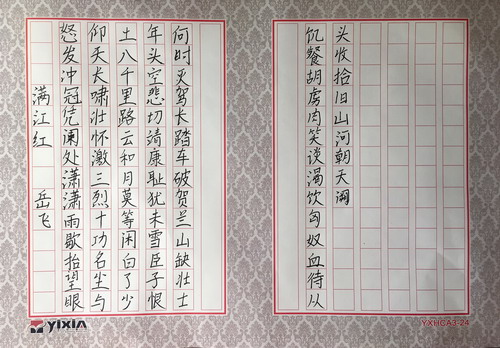 满江红 岳飞
怒发冲冠凭阑处潇潇雨歇抬望眼
仰天长啸壮怀激三烈十功名尘与
土八千里路云和月莫等闲白了少
年头空悲切靖康耻犹未雪臣子恨
何时灭驾长踏车破贺兰山缺壮士
饥餐胡虏肉笑谈渴饮匈奴血待从
头收拾旧山河朝天阙
YIXIA
YXHCA3-24